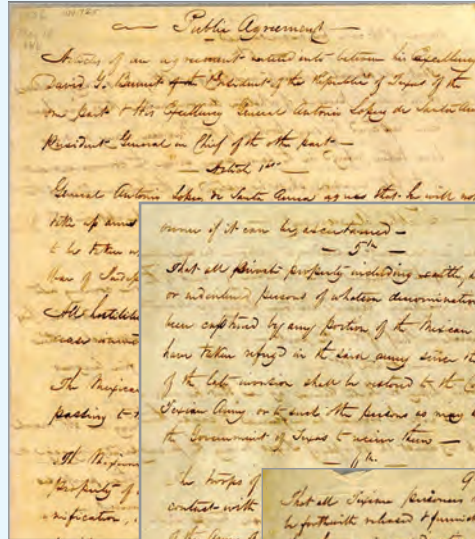 Public Agreement
Articles of an agreement entered into between his Excellency
David G. Burnet of the President of the Republic of Texas of the
one part & His Excellency General Antonio Lopez de Santa
President General in Chief of the other part
Article 1st
General Antonio Lopez de Santa Anna agrees that he will not
take up arms
to be taken
War of
All hostilities
The Mexican
passing to
The Mexican
property
nification
owner if it can be ascertained
5th
That all private property including cattle,
or indentured persons of whatever denomination
been captured by any portion of the Mexican
have taken refuge in the said army since the
of the late invasion shall be restored to the
Texian Army or to such other persons as may
the Government of Texas to receive them
6th
The troops of
contact with
of the Army
That all Texian prisoners
be forthwith released & furnished